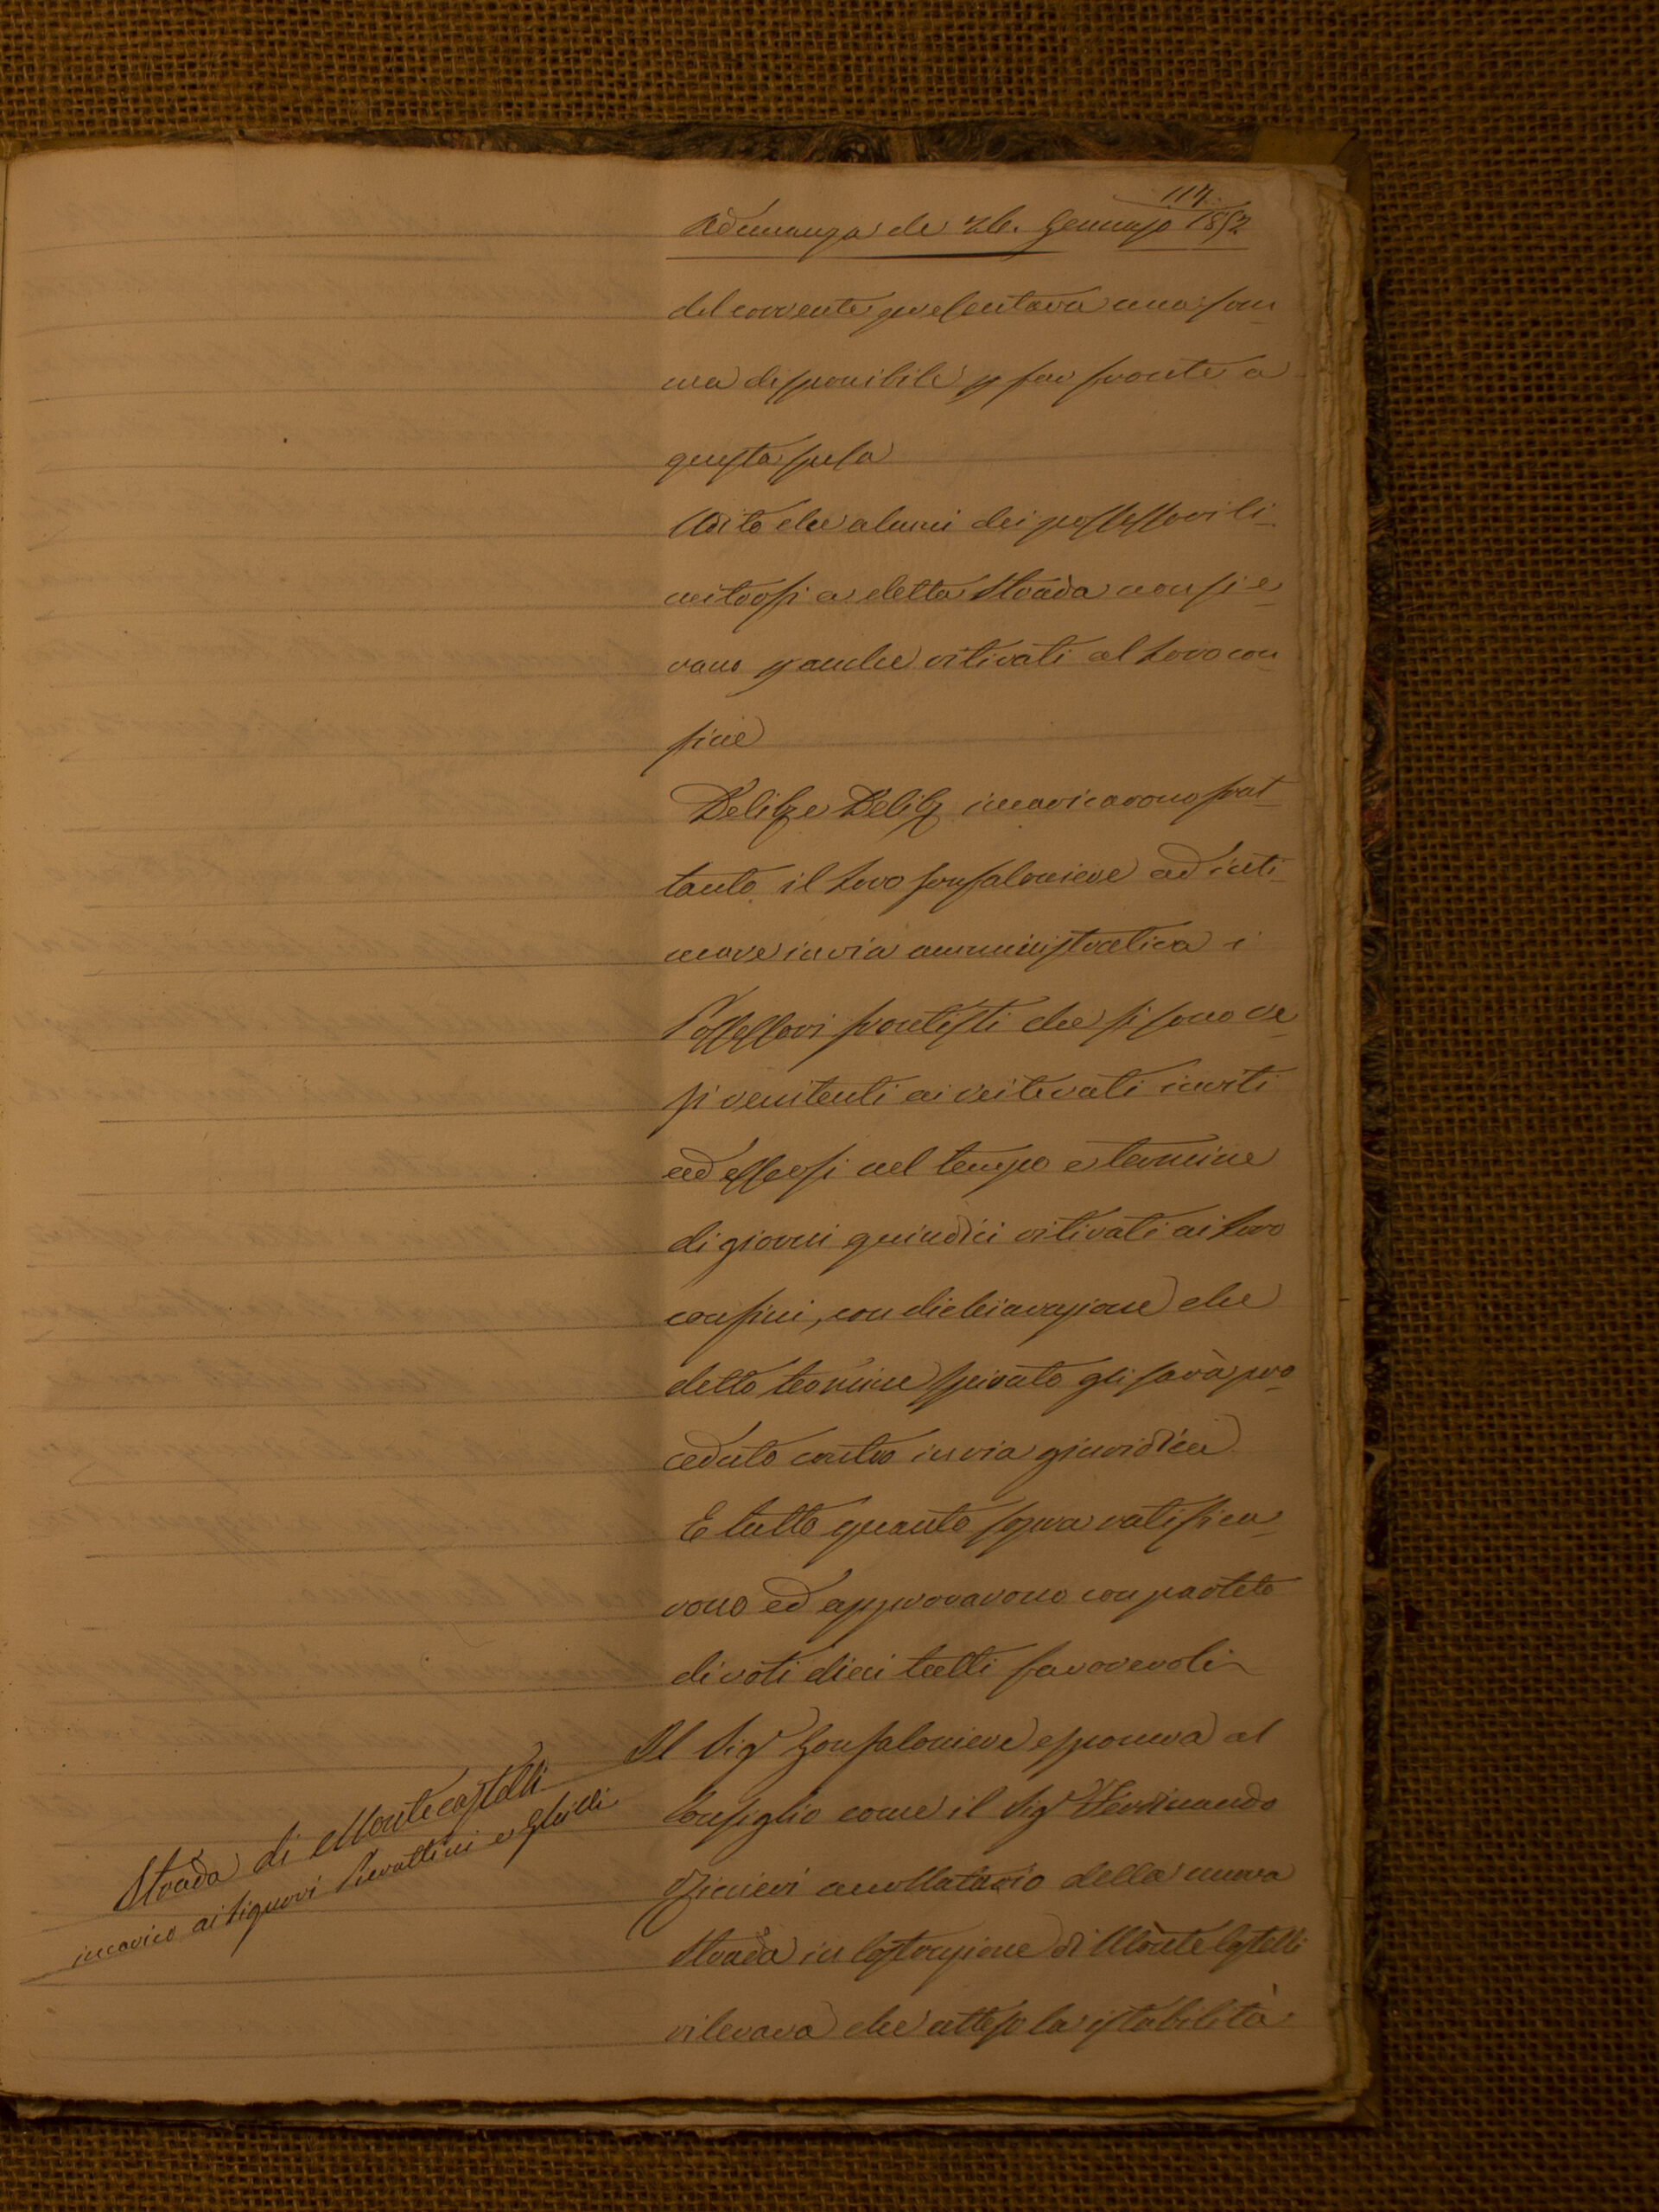 114.
Adunanza de 26. Gennajo 1852
del corrente presentava una som
ma disponibile p far fronte a
questa spesa
Udito che alcuni dei possessori li-
mitrofi a detta Strada non si e-
rano p anche ritirati al loro con
fine
Delib e Delib incaricarono frat-
tanto il loro Gonfaloniere ad inti-
mare in via amministrativa i
Possessori frontisti che si sono re
si renitenti ai reiterati inviti
ad essersi nel tempo e termine
di giorni quindici ritirati ai loro
confini, con dichiarazione che
detto termine spirato gli sarà pro
ceduto contro in via giuridica
E tutto quanto sopra ratifica-
rono ed approvarono con partito
di voti dieci tutti favorevoli
Il Sig Gonfaloniere esponeva al
Strada di Montecastelli
incarico ai Signori Pierattini e Ghilli
Consiglio come il Sig Ferdinando
accollatario della nuova
Strada in Costruzione di Monte Castelli
rilevava che atteso la istabilità